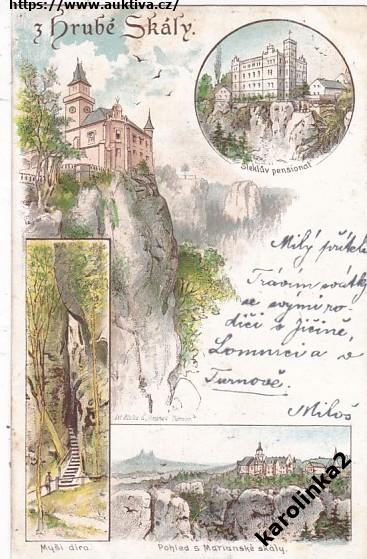 https://www.auktiva.cz/
z Hrubé Skály.
Stekláv pensionat
Milý příteli
Trávím svátky
se svými ro-
diči v Jičíně,
Lomnici a v
Turnově.
Miloš
Myší díra.
Pohled s Marianské skály.
karolinka2